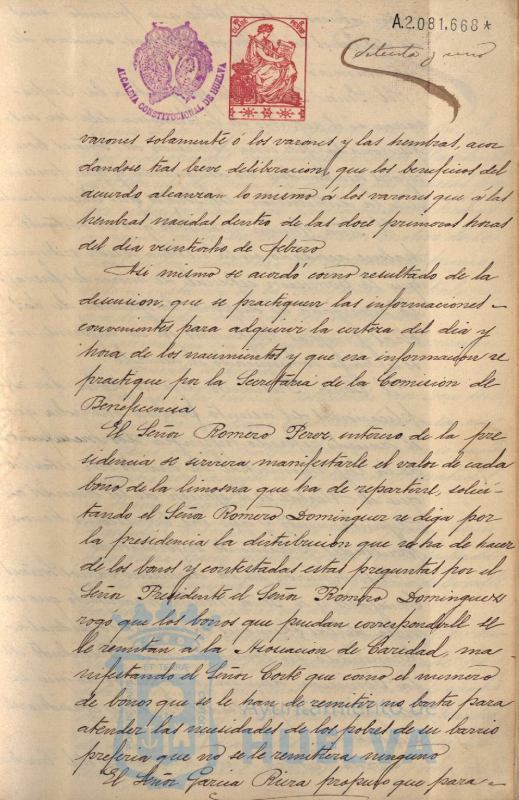 A.2.081.668*
Setenta y uno
ALCALDIA CONSTITUCIONAL DE HUELVA
varones solamente ó los varones y las hembras, acor
dandose tras breve deliberacion, que los beneficios del
acuerdo alcanzan lo mismo á los varones que á las
hembras nacidas dentro de las doce primeras horas
del dia veintiocho de febrero
Asi mismo se acordó como resultado de la
discusion, que se practiquen las informaciones -
convenientes para adquirir la certeza del dia y
hora de los nacimientos y que esa informacion se
practique por la Secretaria de la Comision de
Beneficencia
El Señor Romero Perez, intereso de la pre
sidencia se sirviera manifestarle el valor de cada
bono de la limosna que ha de repartirse, solici-
tando el Señor Romero Dominguez se diga por
la presidencia la distribucion que se ha de hacer
de los bonos y contestadas estas preguntas por el
Señor Presidente el Señor Romero Dominguez
rogo que los bonos que puedan corresponderle se
le remitan á la Asociacion de Caridad, ma
nifestando el Señor Corté que como el numero
de bonos que se le han de remitir no basta para
atender las nesesidades de los pobres de su barrio
preferia que no se le remitiera ninguno
El Señor Garcia Riera propuso que para -
Ayuntamiento de
HUELVA